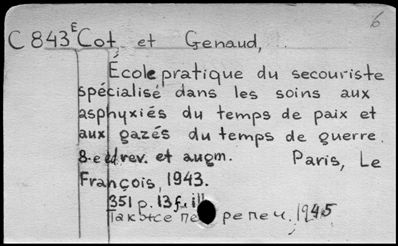 6
C 843 E Cot et Genaud,
École pratique du secouriste
spécialisé dans les soins aux
asphyxiés du temps de paix et
aux gazés du temps de guerre.
8-e éd rev. et augm. Paris, Le
François, 1943.
351 p. 13 f. ill.
Также пе репеч. 1945